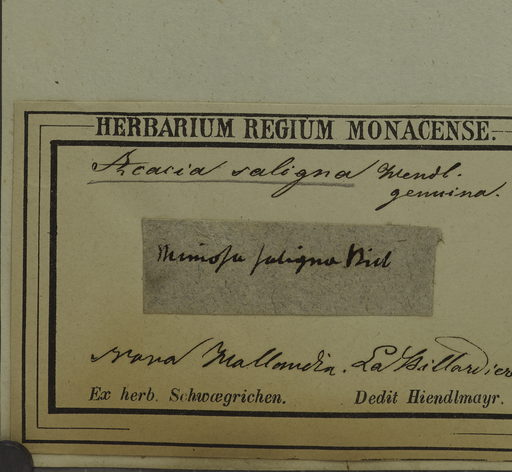 HERBARIUM REGIUM MONACENSE.
Acacia saligna Wendl.
genuina.
Mimosa saligna
Nova Hollandia. La Billardier
Ex herb. Schwægrichen. Dedit Hiendlmayr.